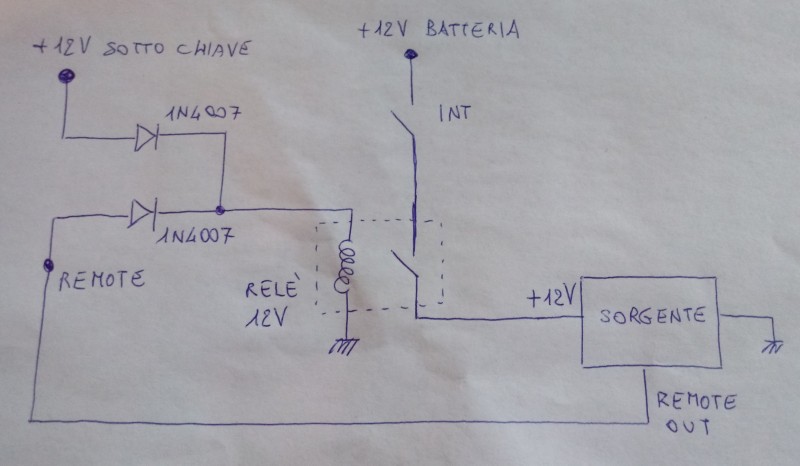 +12V SOTTO CHIAVE
+12V BATTERIA
1N4007
INT
1N4007
REMOTE
RELÈ
12V
+12V
SORGENTE
REMOTE
OUT